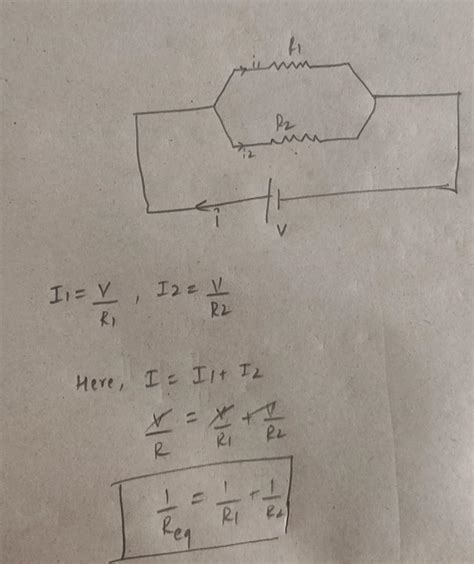 R1
i1
R2
i2
i
V
I1 = V/R1 , I2 = V/R2
Here, I = I1 + I2
V/R = V/R1 + V/R2
1/Req = 1/R1 + 1/R2